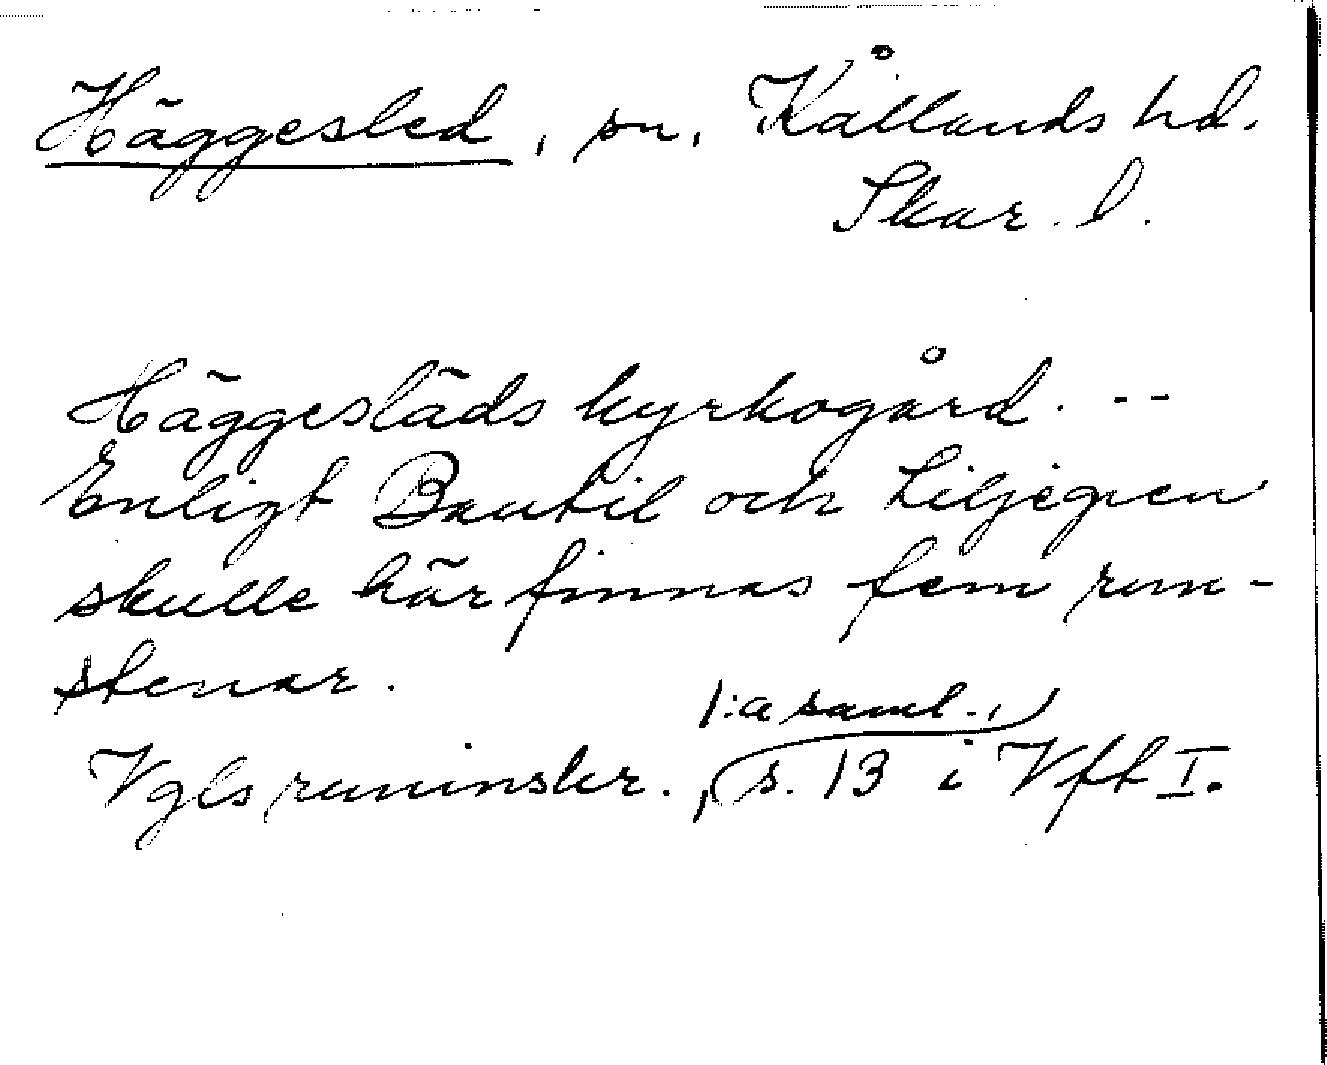 Häggesled, sn, Kållands hd.
Skar. l.
Häggesläds kyrkogård. --
Enligt Bautil och Liljegren
skulle här finnas fem run-
stenar.
1:a saml.,
Vgls runinskr., s. 13 i Vfft I.